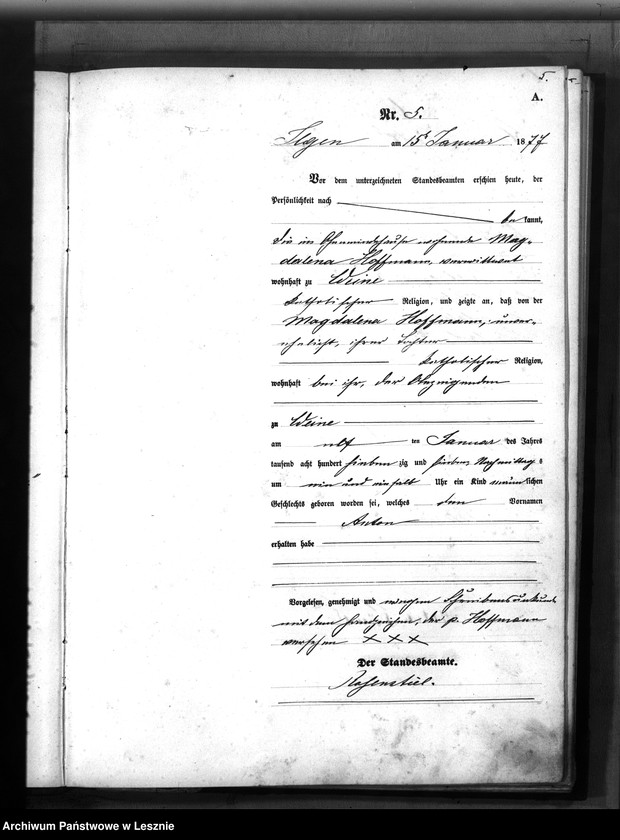 5.
A.
Nr. 5.
Ilgen am 15t Januar 1877
Vor dem unterzeichneten Standesbeamten erschien heute, der
Persönlichkeit nach
bekannt,
die im Gemeindehause wohnende Mag-
dalena Hoffmann, verwittwet
wohnhaft zu Weine
katholischer Religion, und zeigte an, daß von der
Magdalena Hoffmann, unver-
ehelicht, ihrer Tochter
katholischer Religion,
wohnhaft bei ihr, der Anzeigenden
zu Weine
am elf ten Januar des Jahres
tausend acht hundert siebenzig und sieben Nachmittags
um ein und einhalb Uhr ein Kind männlichen
Geschlechts geboren worden sei, welches den Vornamen
Anton
erhalten habe
Vorgelesen, genehmigt und wegen Schreibensunkunde
mit dem Handzeichen, der p. Hoffmann
versehen XXX
Der Standesbeamte.
Rosenstiel.
Archiwum Państwowe w Lesznie